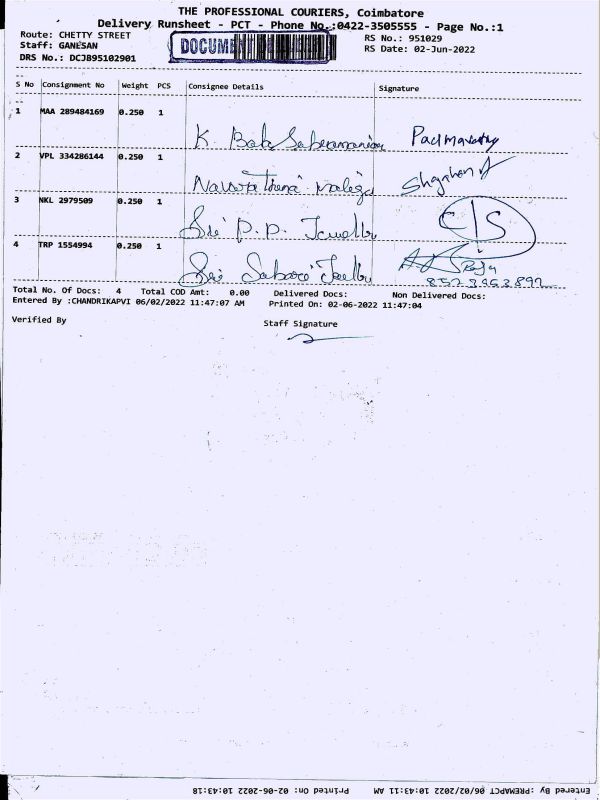 THE PROFESSIONAL COURIERS, Coimbatore
Delivery Runsheet - PCT - Phone No.:0422-3505555 - Page No.:1
Route: CHETTY STREET
RS No.: 951029
Staff: GANESAN
DOCUMEN
RS Date: 02-Jun-2022
DRS No.: DCJB95102901
S No Consignment No Weight PCS Consignee Details Signature
1 MAA 289484169 0.250 1
K Bala Subramanian
2 VPL 334286144 0.250 1
3 NKL 2979509 0.250 1
Sri P.P. Jewellry C/S
4 TRP 1554994 0.250 1
Sri Sabari Raja
Total No. Of Docs: 4 Total COD Amt: 0.00 Delivered Docs: Non Delivered Docs:
Entered By :CHANDRIKAPVI 06/02/2022 11:47:07 AM Printed On: 02-06-2022 11:47:04
Verified By
Staff Signature
Entered By :PREMAPCT 06/02/2022 10:43:11 AM Printed On: 02-06-2022 10:43:18